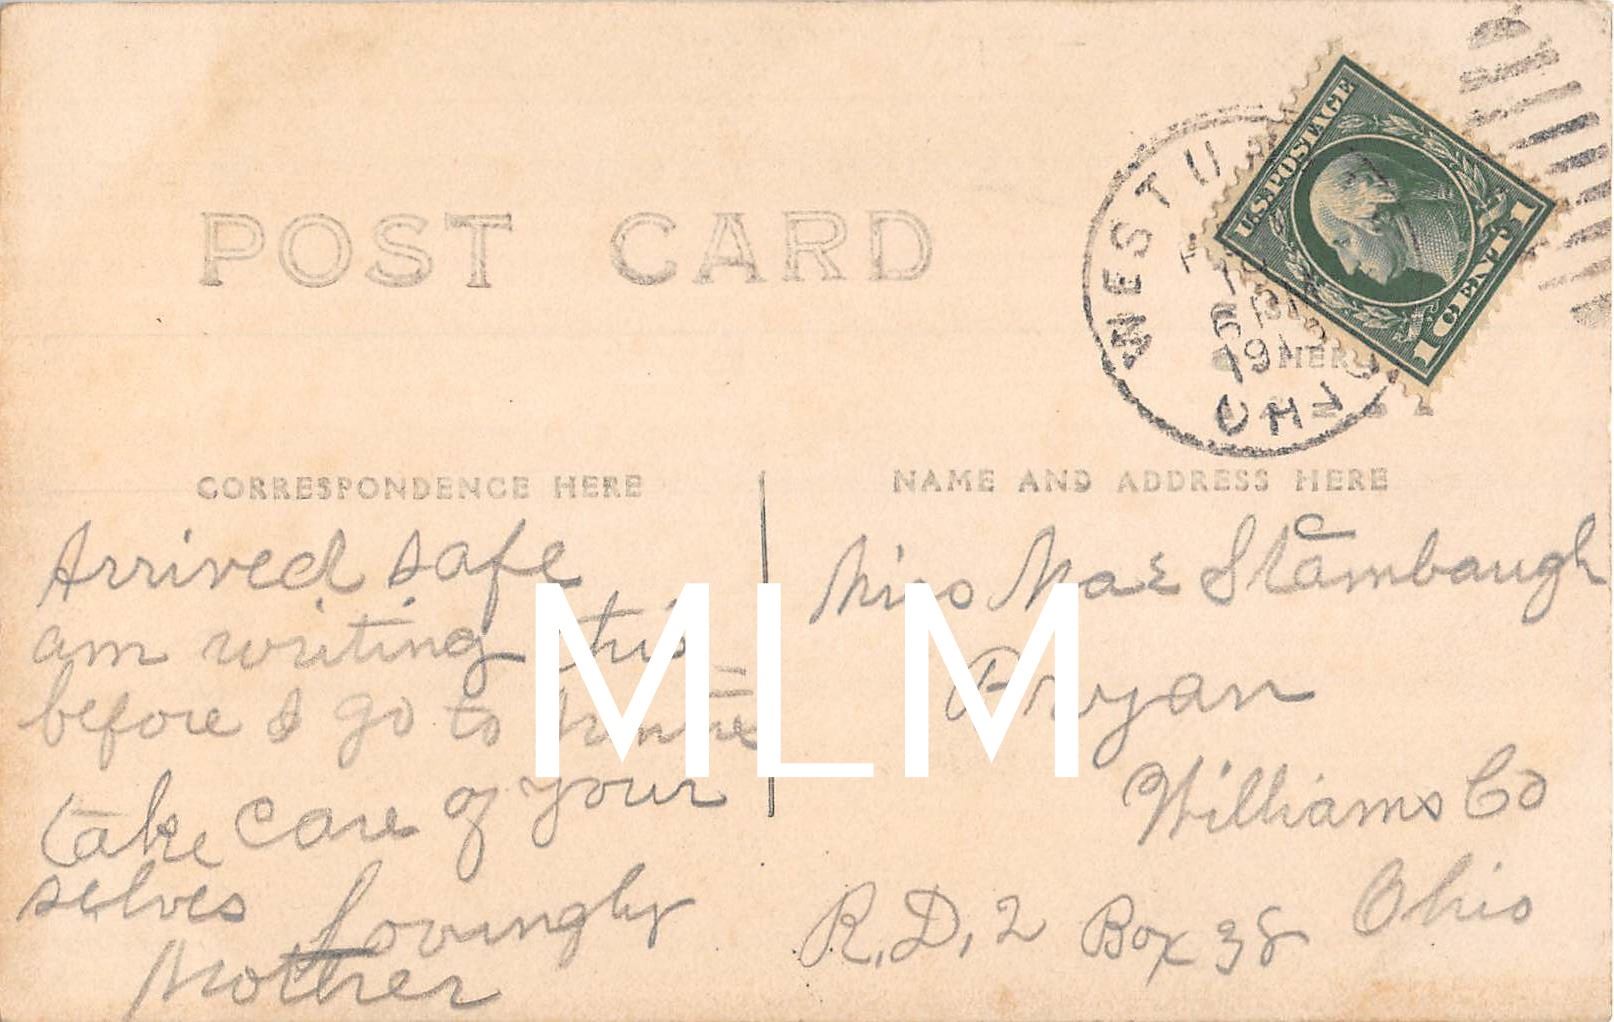 POST CARD
WEST U
19
OHIO
U.S. POSTAGE
1 CENT 1
HERE
CORRESPONDENCE HERE
NAME AND ADDRESS HERE
Arrived safe
am writing this
before I go to
take care of your
selves Lovingly
Mother
Miss Mae Stambaugh
Bryan
Williams Co
Ohio
R.D. 2 Box 38
MLM